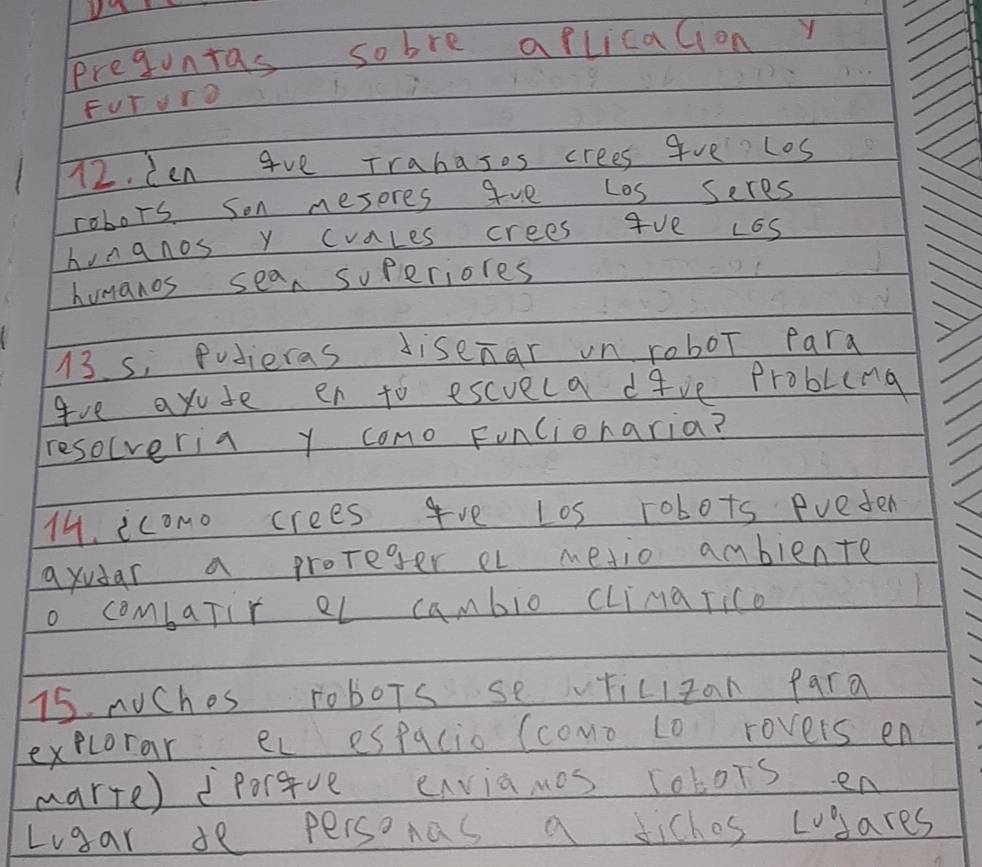 Preguntas sobre aplicacion y
Futuro
12. ¿en que Trabajos crees que los
robots son mejores que los seres
humanos y cuales crees que los
humanos sean superiores
13 si pudieras diseñar un robot para
que ayude en tu escuela ¿que problema
resolveria y como funcionaria?
14. ¿como crees que los robots pueden
ayudar a proteger el medio ambiente
o combatir el cambio climatico
15. muchos robots se utilizan para
explorar el espacio (como lo rovers en
marte) ¿porque enviamos robots en
lugar de personas a dichos lugares